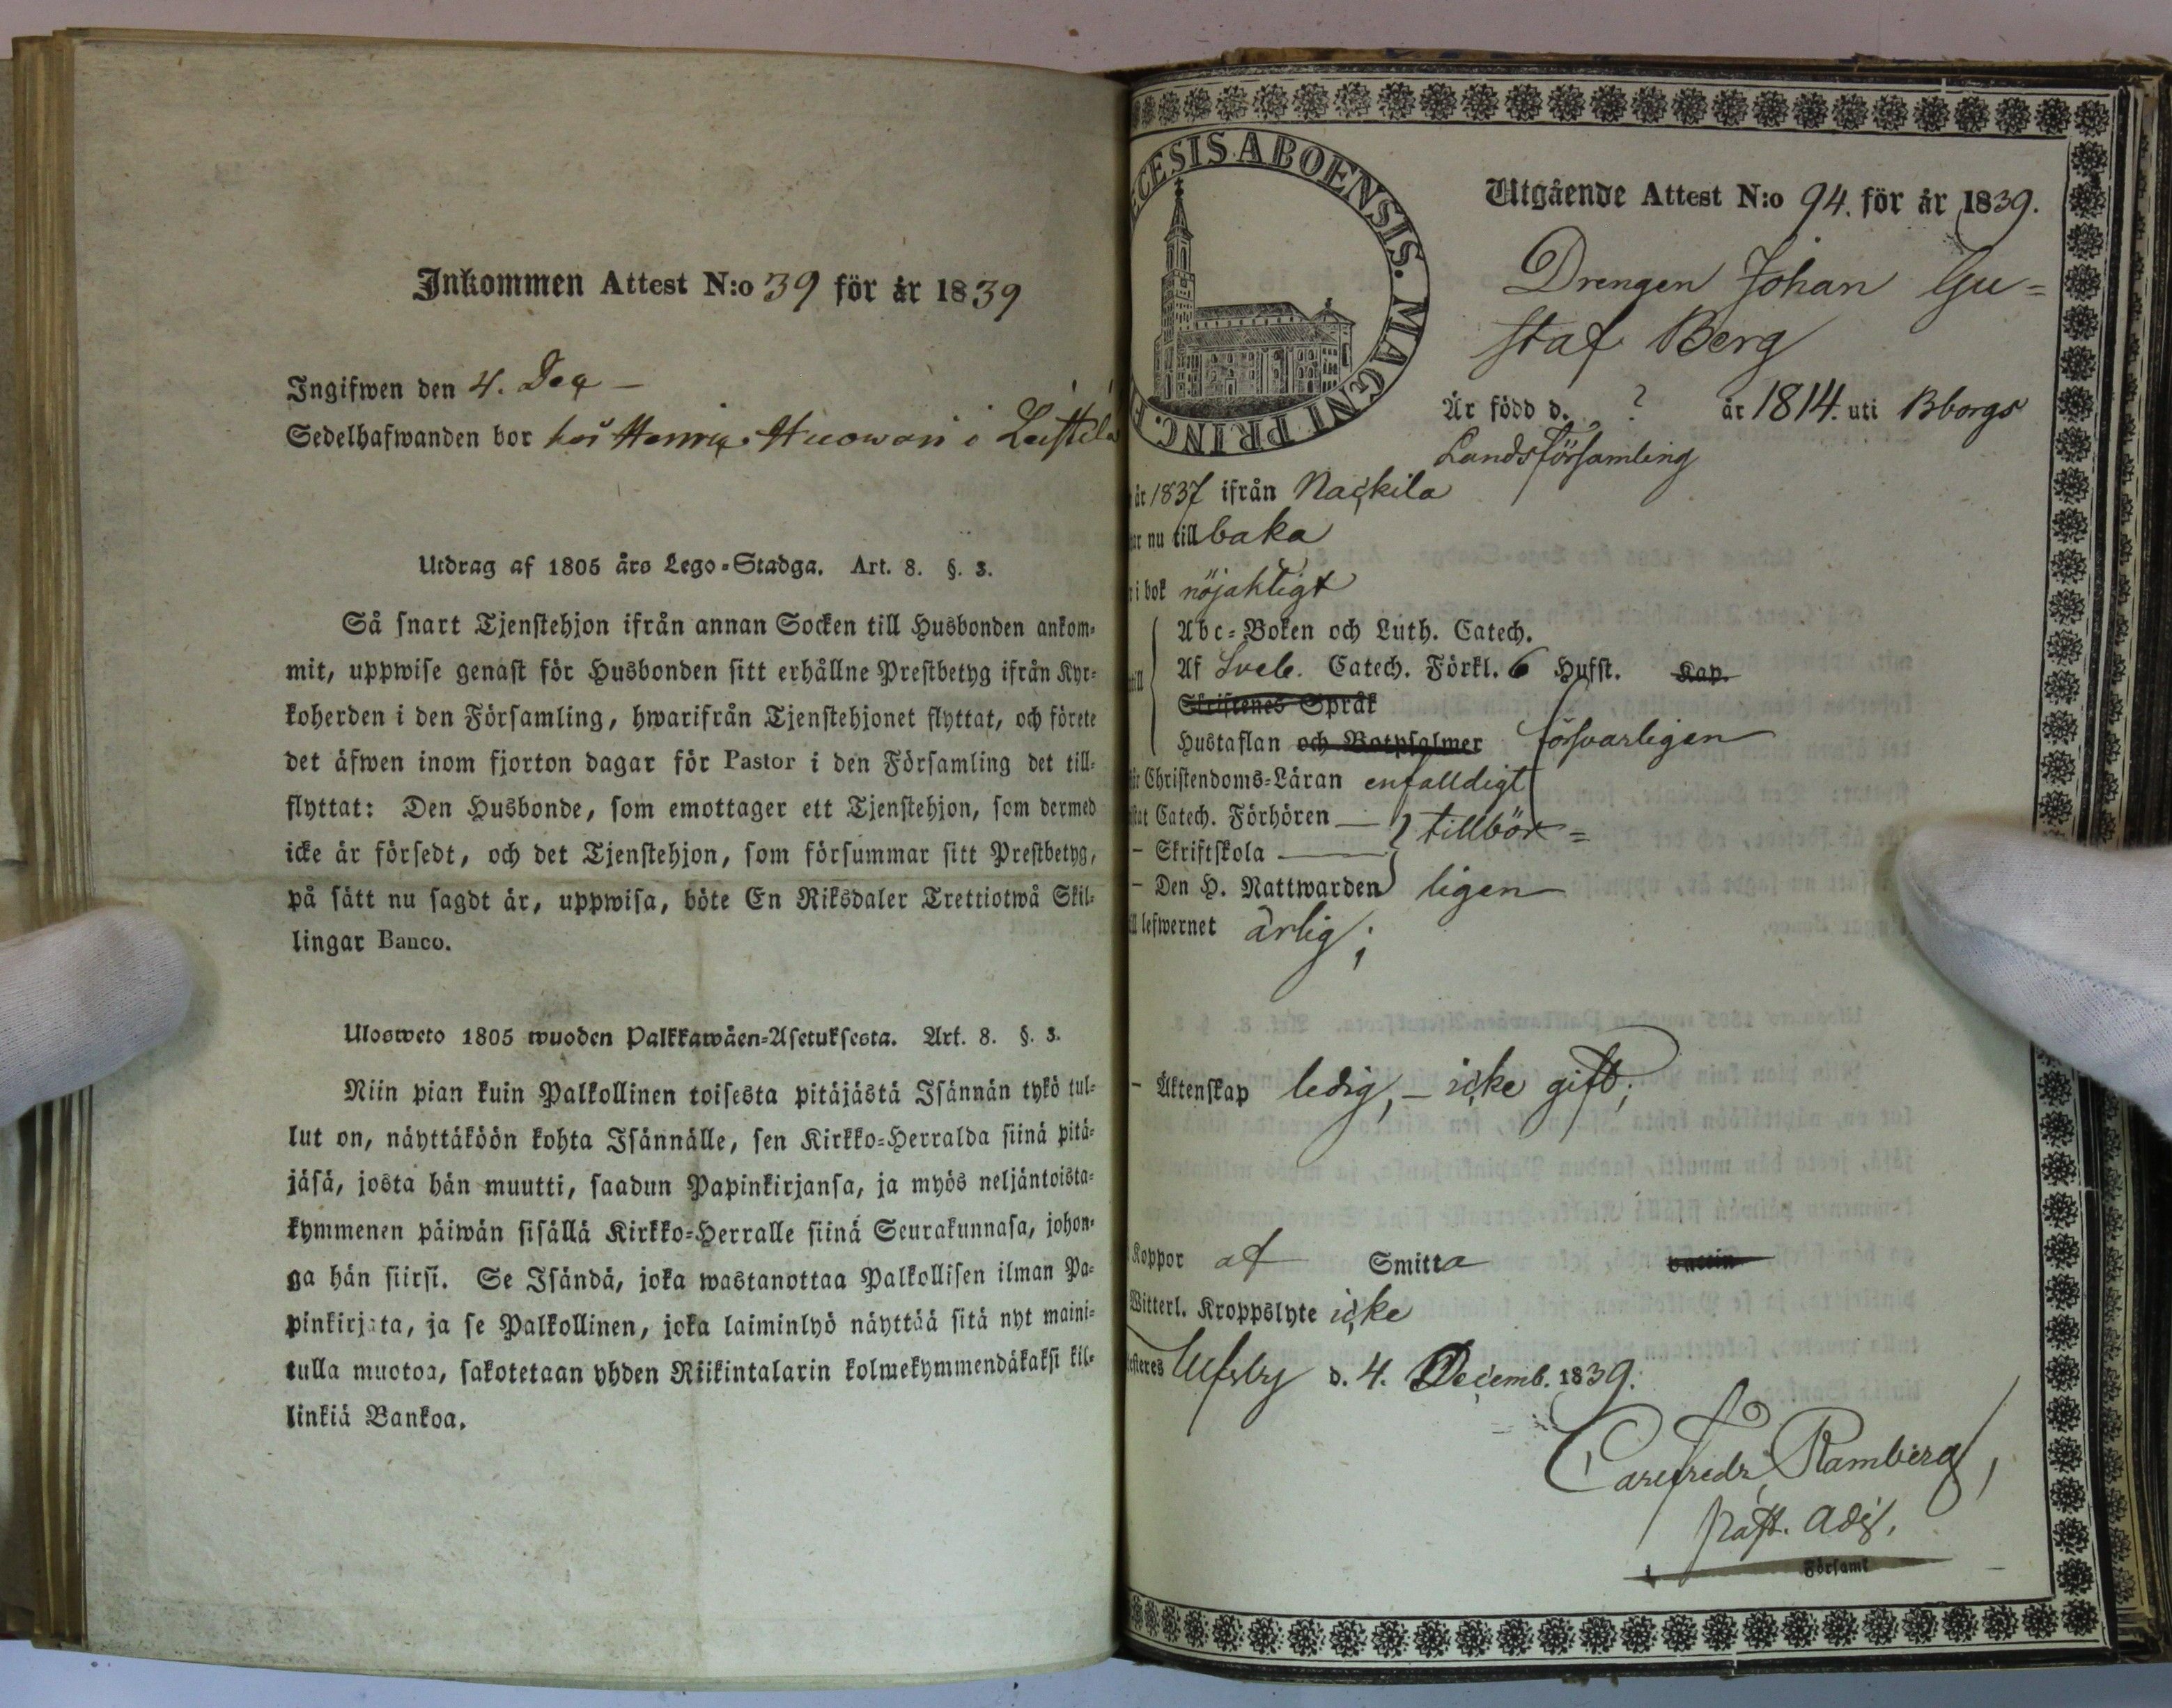 Inkommen Attest N:o 39 för år 1839
Ingifwen den 4. Dec –
Sedelhafwanden bor hos Henric Huowari i Leistilä
Utdrag af 1805 års Lego-Stadga. Art. 8. §. 3.
Så snart Tjenstehjon ifrån annan Socken till Husbonden ankom-
mit, uppwise genast för Husbonden sitt erhållne Prestbetyg ifrån Kyr-
koherden i den Församling, hwarifrån Tjenstehjonet flyttat, och förete
det äfwen inom fjorton dagar för Pastor i den Församling det till-
flyttat: Den Husbonde, som emottager ett Tjenstehjon, som dermed
icke är försedt, och det Tjenstehjon, som försummar sitt Prestbetyg,
på sätt nu sagdt är, uppwisa, böte En Riksdaler Trettiotwå Skil-
lingar Banco.
Ulosweto 1805 wuoden Palkkawäen-Asetuksesta. Art. 8. §. 3.
Niin pian kuin Palkollinen toisesta pitäjästä Isännän tykö tul-
lut on, näyttäköön kohta Isännälle, sen Kirkko-Herralda siinä pitä-
jäsä, josta hän muutti, saadun Papinkirjansa, ja myös neljäntoista-
kymmenen päiwän sisällä Kirkko-Herralle siinä Seurakunnasa, johon-
ga hän siirsi. Se Isändä, joka wastanottaa Palkollisen ilman Pa-
pinkirjata, ja se Palkollinen, joka laiminlyö näyttää sitä nyt maini-
tulla muotoa, sakotetaan yhden Riikintalarin kolmekymmendäkaksi kil-
linkiä Bankoa.
ECESIS ABOENSIS. MAGNI PRINC. F
Utgående Attest N:o 94. för år 1839.
Drengen Johan Gu=
staf Berg
Är född d. ? år 1814. uti Bborgs
Landsförsamling
år 1837 ifrån Nackila
nu till baka
i bok nöjaktigt
Abc-Boken och Luth. Catech.
Af Sveb. Catech. Förkl. 6 Hufst. Kap.
Skriftenes Språk
Hustaflan och Botpsalmer försvarligen
Christendoms-Läran enfalldigt
Catech. Förhören — tillbör=
– Skriftskola —
– Den H. Nattwarden ligen
lefwernet ärlig;
– Äktenskap ledig, – icke gift;
Koppor af Smitta vaccin
Witterl. Kroppslyte icke
Ulfsby d. 4. Decemb. 1839.
Carl Fredr. Ramberg,
Past. Adj.
Församl